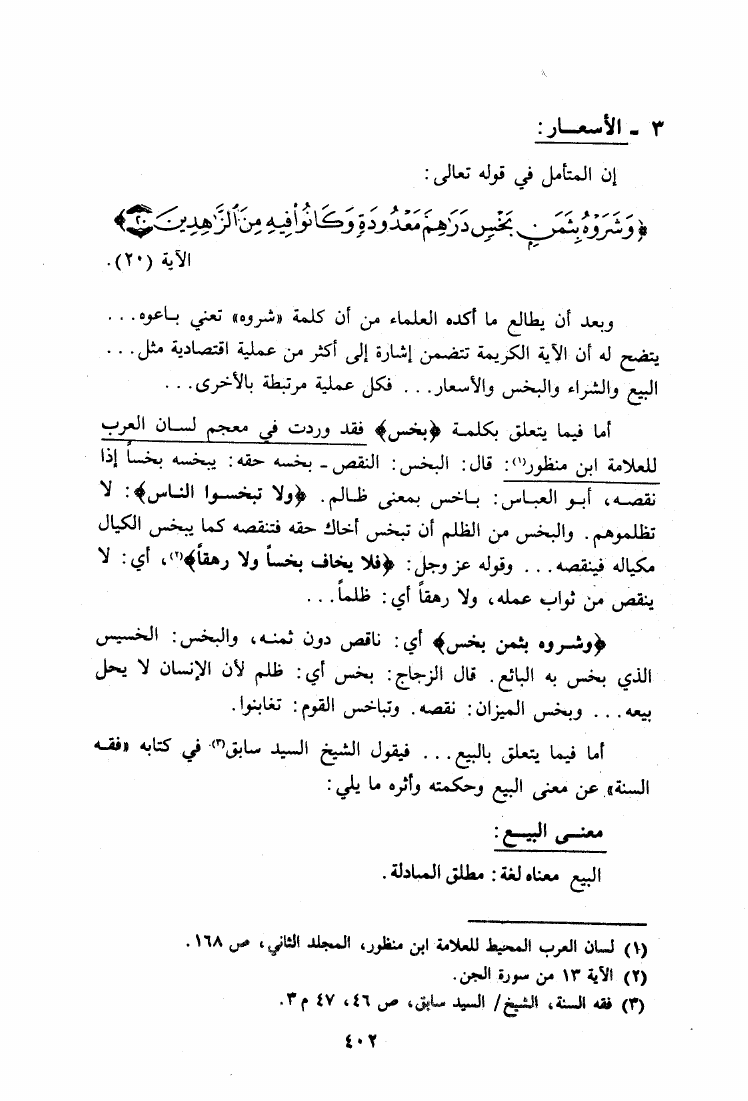 ٣ - الأسعـــار :
إن المتأمل في قوله تعالى :
﴿وَشَرَوْهُ بِثَمَنٍ بَخْسٍ دَرَاهِمَ مَعْدُودَةٍ وَكَانُوا فِيهِ مِنَ الزَّاهِدِينَ ٢٠﴾
الآية (٢٠) .
وبعد أن يطالع ما أكده العلماء من أن كلمة «شروه» تعني بـاعوه . . .
يتضح له أن الآية الكريمة تتضمن إشارة إلى أكثر من عملية اقتصادية مثل . . .
البيع والشراء والبخس والأسعار . . . فكل عملية مرتبطة بالأخرى . . .
أما فيما يتعلق بكلمـة ﴿بخس﴾ فقد وردت في معجم لسـان العرب
للعلامة ابن منظور(١) : قال : البخس : النقص - بخسه حقه : يبخسه بخسـاً إذا
نقصـه ، أبـو العبـاس : بـاخس بمعنى ظـالم . ﴿ولا تبخسـوا النـاس﴾ : لا
تظلموهم . والبخس من الظلم أن تبخس أخاك حقه فتنقصه كما يبخس الكيال
مكياله فينقصه . . . وقوله عز وجل : ﴿فلا يخاف بخساً ولا رهقاً﴾(٢) ، أي : لا
ينقص من ثواب عمله ، ولا رهقاً أي : ظلماً . . .
﴿وشـروه بثمن بخس﴾ أي : ناقص دون ثمنـه ، والبخس : الخسيس
الذي بخس به البائع . قال الزجاج : بخس أي : ظلم لأن الإنسان لا يحل
بيعه . . . وبخس الميزان : نقصه . وتباخس القوم : تغابنوا .
أما فيما يتعلق بالبيع . . . فيقول الشيخ السيد سابق(٣) في كتابه «فقـه
السنة» عن معنى البيع وحكمته وأثره ما يلي :
معنـى البيـع :
البيع معناه لغة : مطلق المبادلة .
(١) لسان العرب المحيط للعلامة ابن منظور ، المجلد الثاني ، ص ١٦٨ .
(٢) الآية ١٣ من سورة الجن .
(٣) فقه السنة ، الشيخ / السيد سابق ، ص ٤٦ ، ٤٧ م ٣ .
٤٠٢